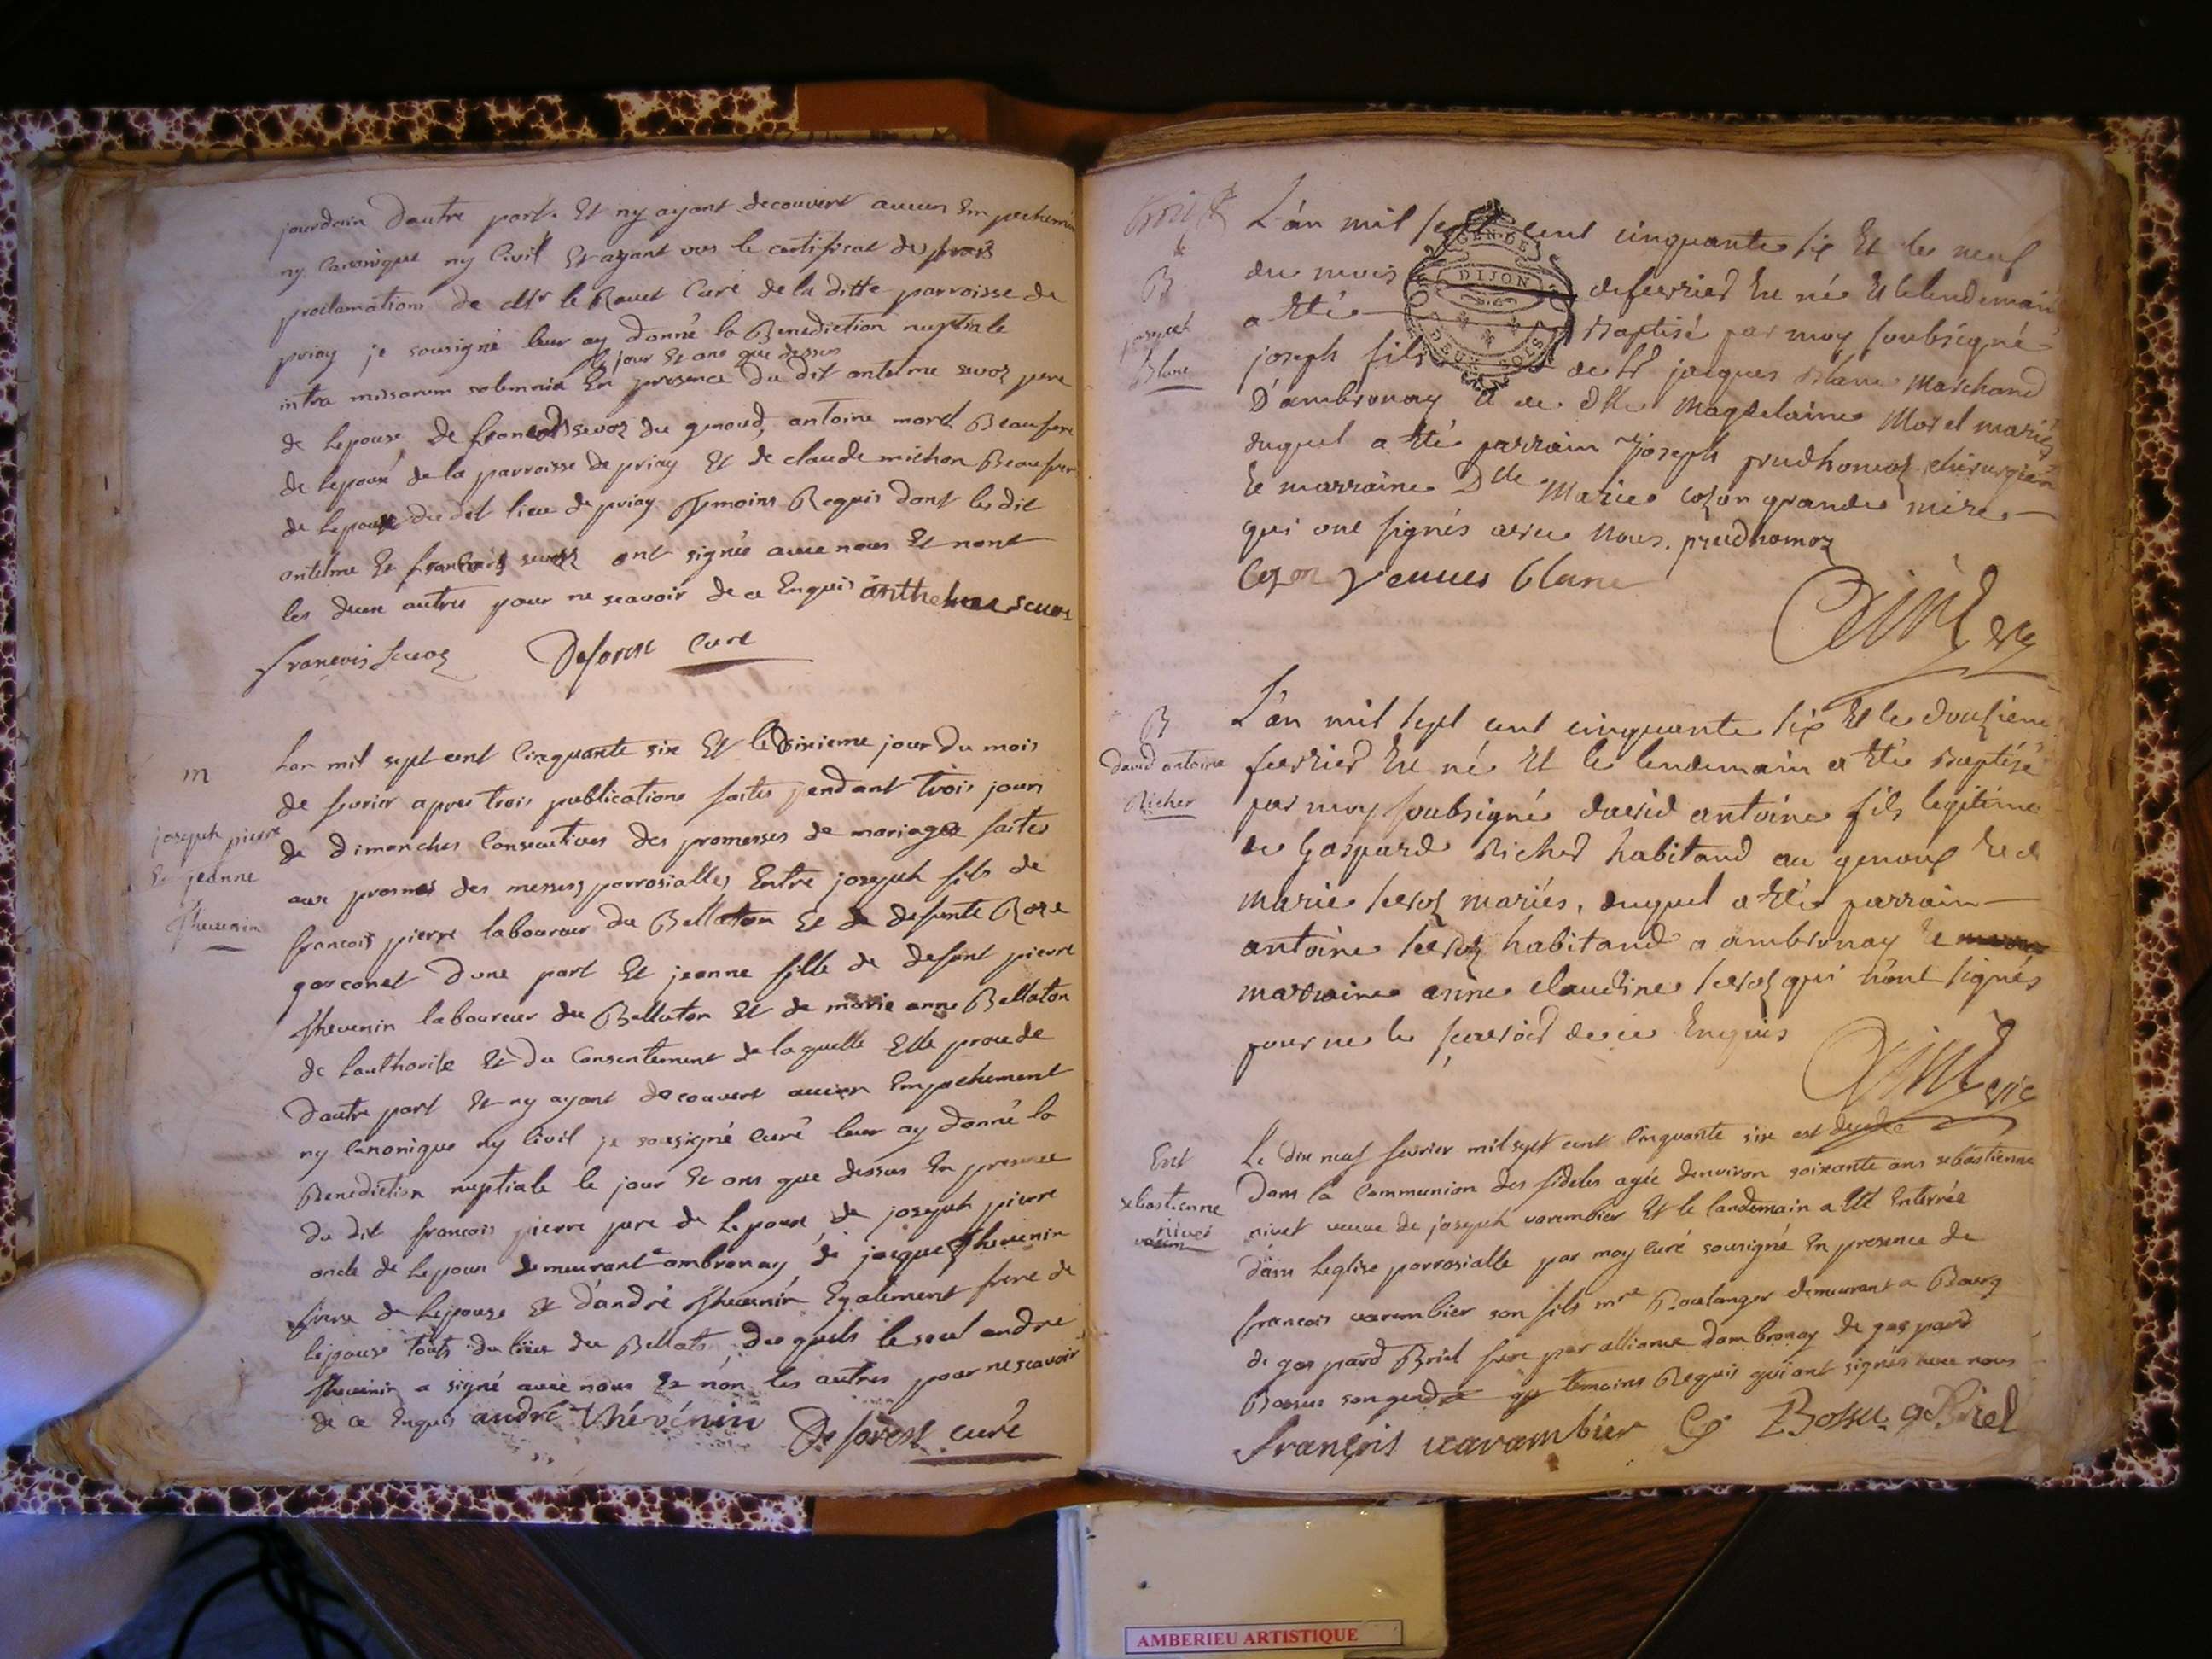 jourdain dautre part. Et ny ayant decouvert aucun Empechemen
ny Canonique ny Civil Et ayant vus le certificat de trois
proclamations de Mr le Rouet Curé de la ditte parroisse de
priay je sousigné leur ay donné la Benediction nuptiale
le jour Et ans que dessus
intra missarum solemnia En presence du dit antelme sevoz pere
de lepouse, de francois sevoz du genoud, antoine morel Beaufrere
de lepoux de la parroisse de priay Et de claude michon Beaufrer
de lepouse du dit lieu de priay Temoins Requis dont les dit
antelme Et francois sevoz ont signés avec nous Et nont
les deux autres pour ne scavoir de ce Enquis anthelme sevos
francois sevoz Deforest Curé
m
joseph pierre
Et jeanne
Thevenin
Lan mil sept cent Cinquante six Et le dixieme jour du mois
de fevrier apres trois publications faites pendant trois jours
de dimanches Consecutives des promesses de mariages faites
aux prosnes des messes parrosialles Entre joseph fils de
francois pierre laboureur du Bellaton Et de defunte Roze
garconet dune part Et jeanne fille de defunt pierre
Thevenin laboureur du Bellaton Et de marie anne Bellaton
de lauthorité Et du Consentement de laquelle Elle procede
dautre part Et ny ayant decouvert aucun Empechement
ny Canonique ny Civil je sousigné curé leur ay donné la
Benediction nuptiale le jour Et ans que dessus En presence
du dit francois pierre pere de lepoux, de joseph pierre
oncle de lepoux demeurant ambronay de jacque Thevenin
frere de lepouse Et dandré Thevenin Egalement frere de
lepouse touts du lieu du Bellaton desquels le seul andre
Thevenin a signé avec nous Et non les autres pour ne scavoir
de ce Enquis andré thévénin Deforest curé
B
joseph
Blanc
L'an mil sept cent cinquante six Et le neuf
du mois de fevrier Est né Et le lendemain
a Eté Baptisé par moy soubsigné
joseph fils de Sr jacques Blanc Marchand
D'ambronay Et de Dlle Magdelaine Morel mariés
duquel a Eté parrain joseph prudhomoz chirurgien
Et marraine Dlle Marie cozon grande mère
qui ont signés avec Nous. prudhomoz
Cozon Blanc
GEN. DE
DIJON
DEUX SOLS
B
david antoine
Richer
L'an mil sept cent cinquante six Et le douzieme
fevrier Est né Et le lendemain a Eté Baptisé
par moy soubsigné david antoine fils legitime
de Gaspard Richer habitand au genoux Et de
marie sevoz mariés, duquel a Eté parrain
antoine sevoz habitand a ambronay Et
marraine anne claudine sevoz qui n'ont signés
pour ne le sçavoir de ce Enquis
Ent
sebastienne
nivet
Le dix neuf fevrier mil sept cent Cinquante six est decedée
Dans la Communion des fideles agée denviron soixante ans sebastienne
nivet veuve de joseph varembier Et le landemain a Eté Enterrée
dans leglise parrosialle par moy curé sousigné En presence de
francois varembier son fils mre Boulanger demeurant a Bourg
de gaspard Briel frere par alliance dambronay de gaspard
Bossus son gendre temoins Requis qui ont signés avec nous
françois varambier G Bossu g Briel
AMBERIEU ARTISTIQUE